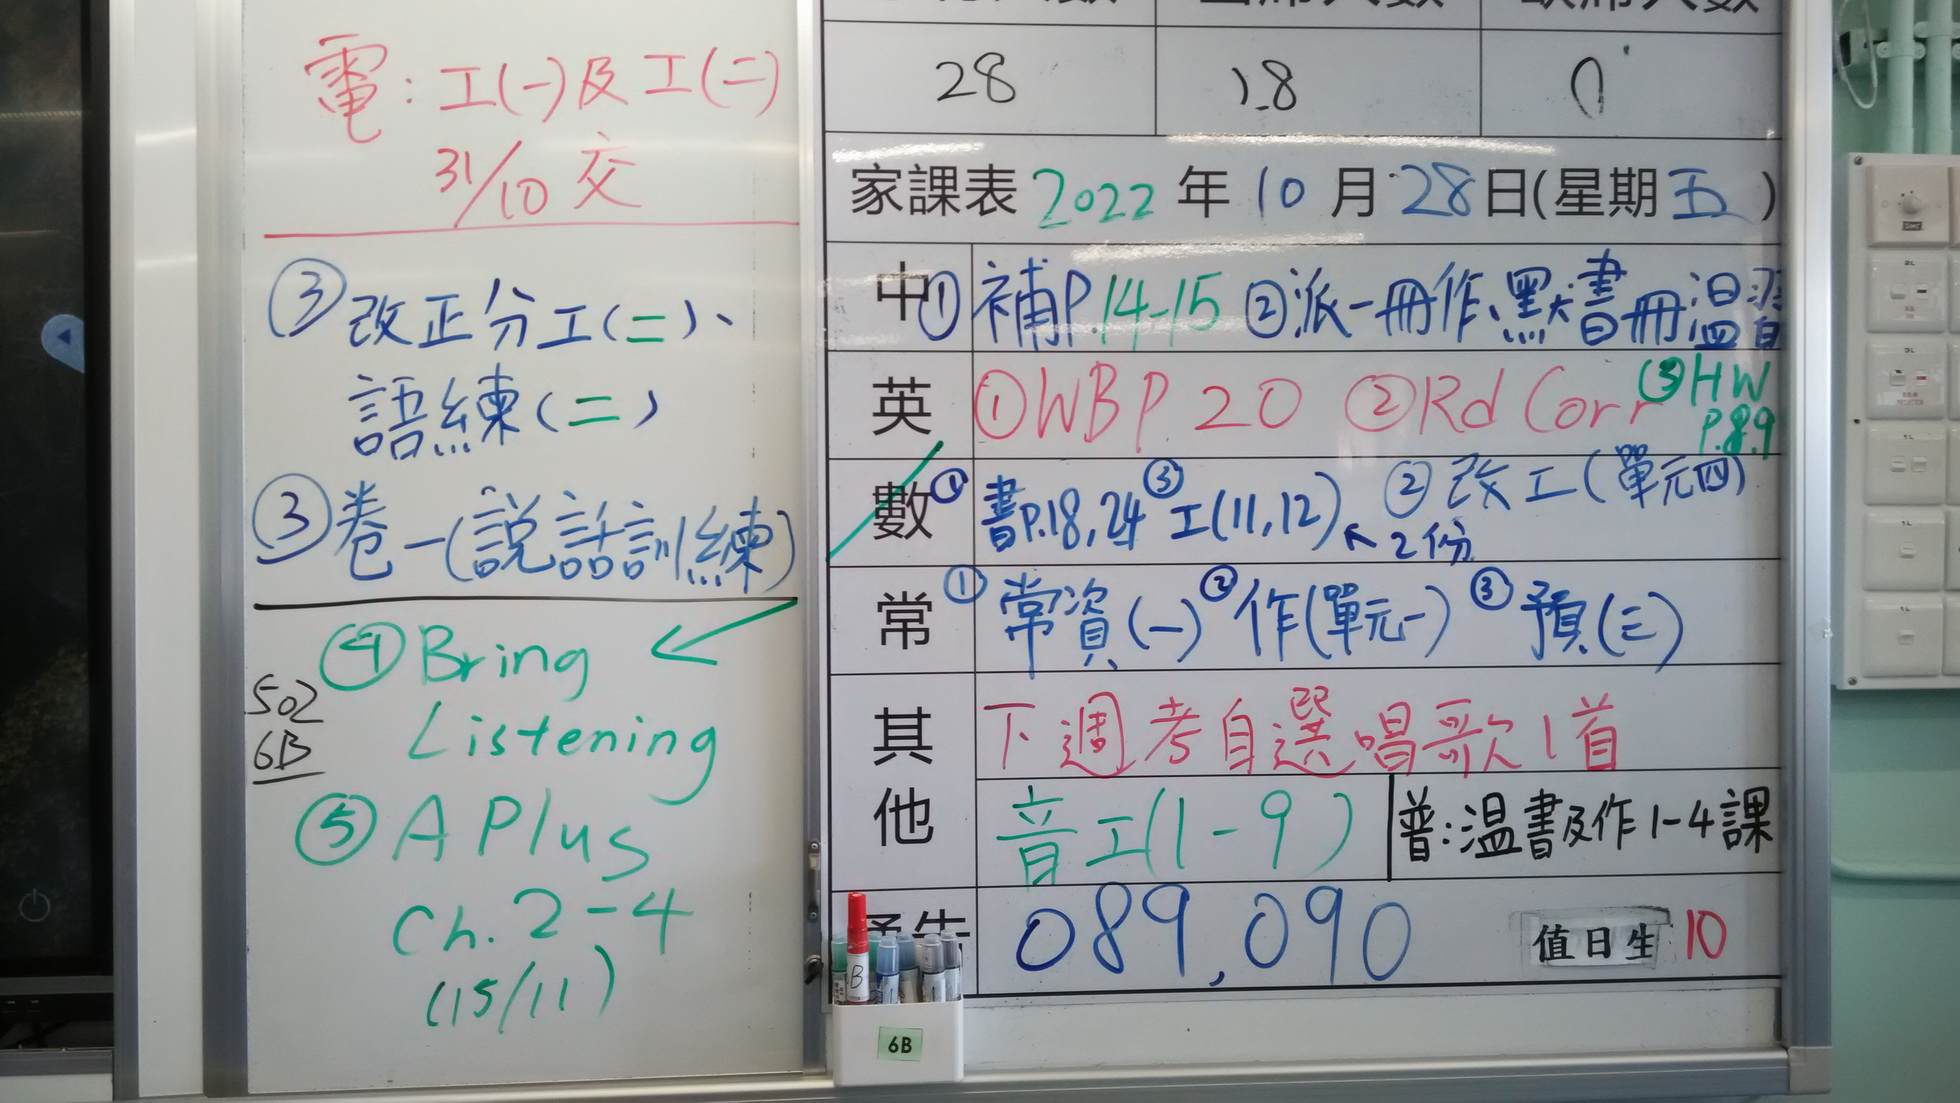 電：工(一)及工(二)
31/10 交
③改正分工(二)、
語練(二)
③卷一(說話訓練)
④Bring
Listening
502
6B
⑤A Plus
Ch. 2-4
(15/11)
28 28 0
家課表 2022 年 10 月 28 日(星期五)
中 ①補P.14-15 ②派一冊作、默書冊溫習
英 ①WBP 20 ②Rd Corr ③HW
P.8.9
數 ①書P.18,24 ③工(11,12) ②改工(單元四)
↖2份
常 ①常資(一) ②作(單元一) ③預(三)
其他 下週考自選唱歌1首
音工(1-9) 普：温書及作1-4課
089,090 值日生 10
B
6B